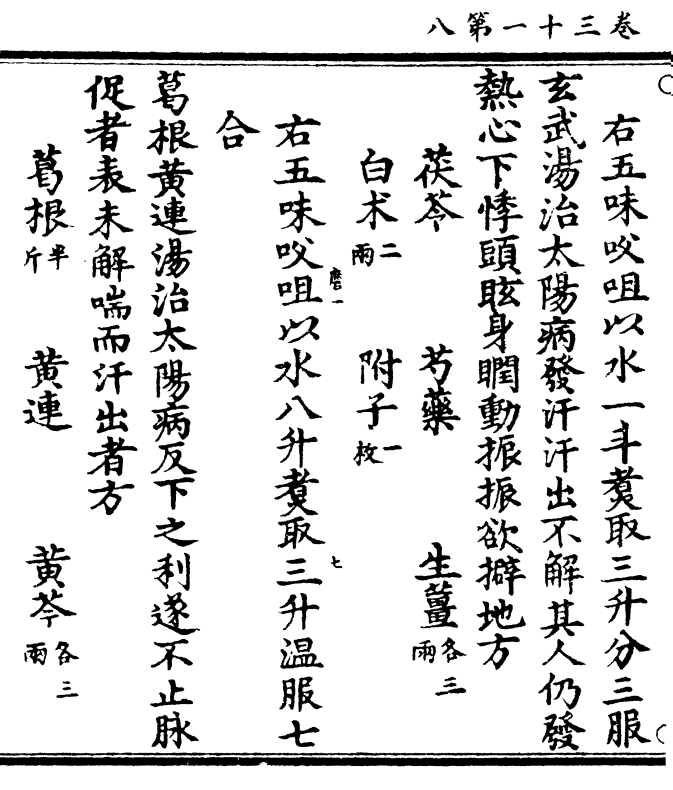 卷三十一第八
右五味㕮咀以水一斗煑取三升分三服
玄武湯治太陽病發汗汗出不解其人仍發
熱心下悸頭眩身瞤動振振欲擗地方
茯苓　芍藥　生薑各三兩
白朮二兩　附子一枚
右五味㕮咀以水八升煑取三升温服七
磨一　七
合
葛根黃連湯治太陽病反下之利遂不止脉
促者表未解喘而汗出者方
葛根半斤　黃連　黃芩各三兩